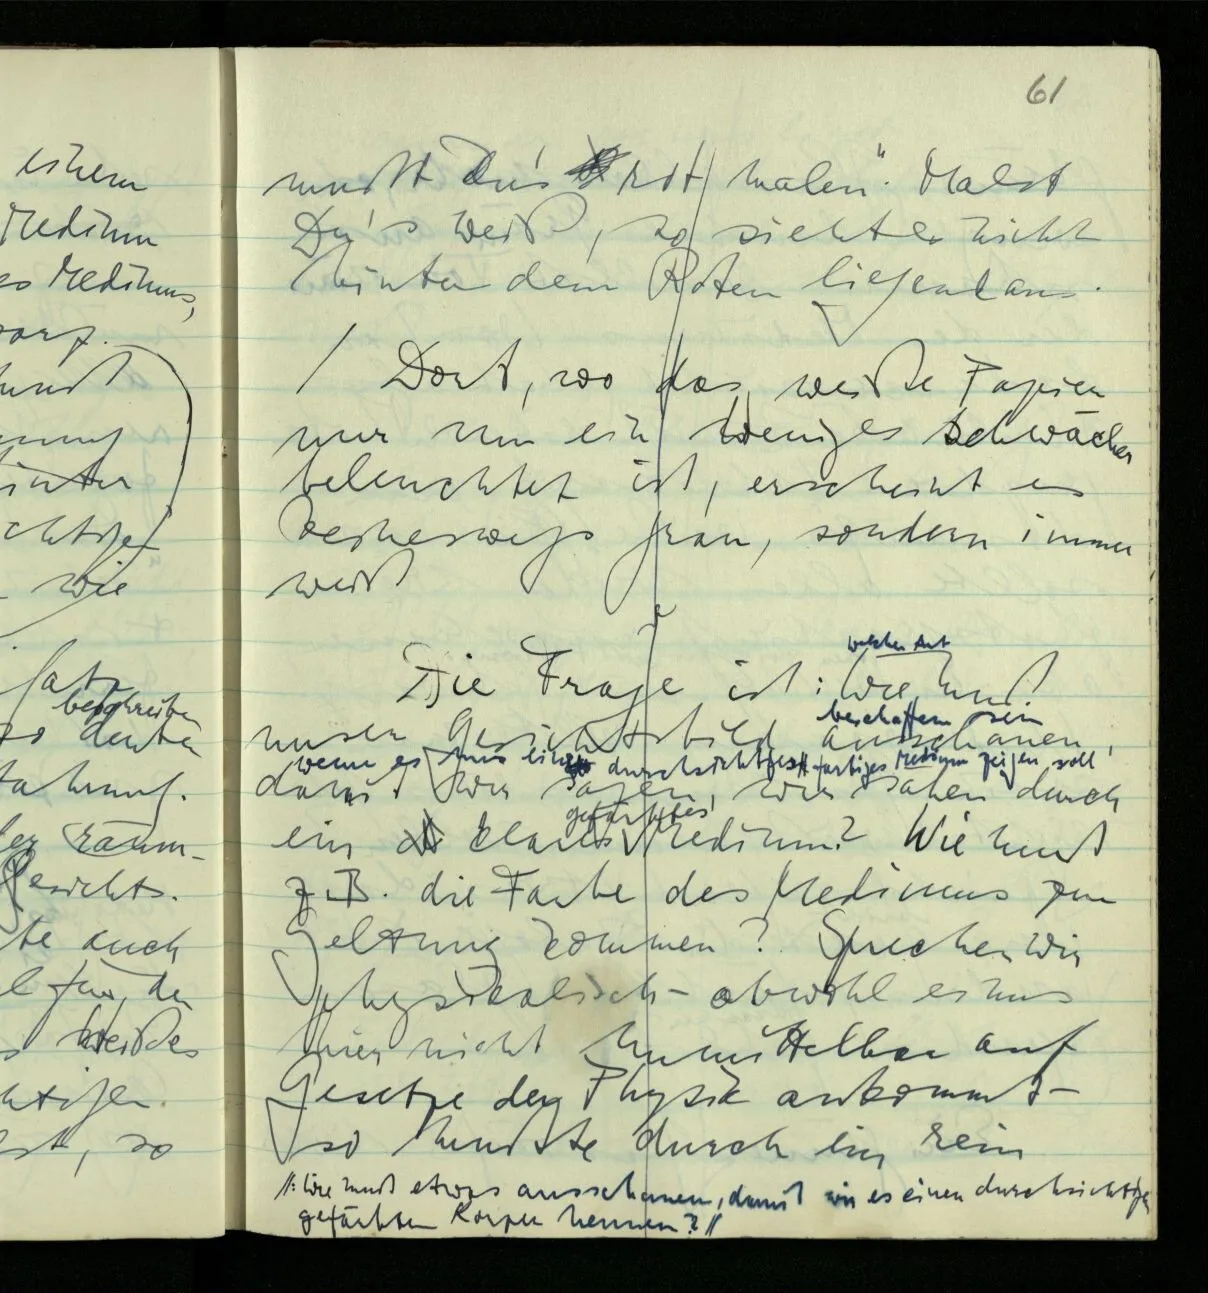 61
einem
Medium
Mediums,
mußt Du's rot malen". Malst
Du's weiß, so sieht es nicht
hinter dem Roten liegend aus.
/ Dort, wo das weiße Papier
nur um ein weniges schwächer
beleuchtet ist, erscheint es
keineswegs grau, sondern immer
weiß
welcher Art
Die Frage ist: Wie muß
beschaffen sein
unser Gesichtsbild ausschauen,
wenn es uns ein durchsichtiges färbiges Medium zeigen soll
damit wir sagen, wir sähen durch
gefärbtes
ein klares Medium? Wie muß
z.B. die Farbe des Mediums zur
Geltung kommen? Sprechen wir
physikalisch – obwohl es uns
hier nicht unmittelbar auf
Gesetze der Physik ankommt –
so müßte durch ein rein
//: Wie muß etwas ausschauen, damit wir es einen durchsichtigen
gefärbten Körper nennen? //
wie
beschreiben
so deuten
räum-
Gesichts.
auch
für den
Weißes
so